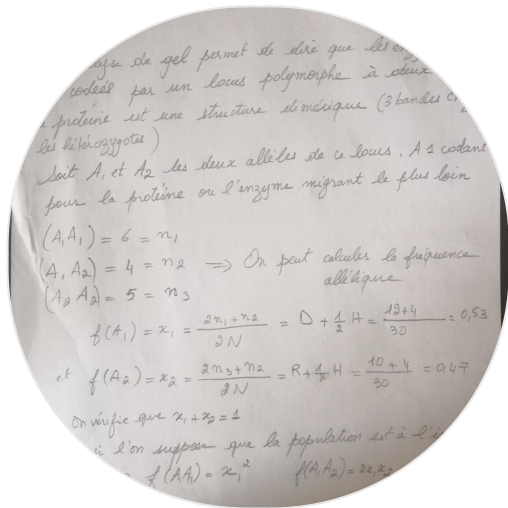 de gel permet de dire que les
codées par un locus polymorphe à deux
protéine est une structure dimérique (3 bandes
les hétérozygotes)
Soit A1 et A2 les deux allèles de ce locus. A1 codant
pour la protéine ou l'enzyme migrant le plus loin
(A1A1) = 6 = n1
(A1A2) = 4 = n2 => On peut calculer la fréquence
allélique
(A2A2) = 5 = n3
f(A1) = x1 = (2n1+n2)/2N = D + 1/2 H = (12+4)/30 = 0,53
et f(A2) = x2 = (2n3+n2)/2N = R + 1/2 H = (10+4)/30 = 0,47
On vérifie que x1+x2=1
l'on suppose que la population est à
f(A1A1) = x1² f(A1A2) = 2x1x2